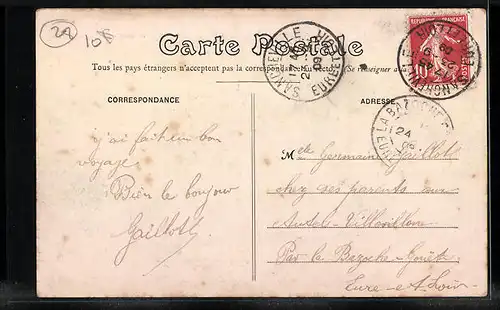 2A
10f
Carte Postale
Tous les pays étrangers n'acceptent pas la correspondance au recto. (Se renseigner à
CORRESPONDANCE
ADRESSE
RÉPUBLIQUE FRANÇAISE
10
SANCHEVILLE
EURE ET
09
LA BAZOCHE
24
j'ai fait un bon
voyage
Bien le bonjour
Gaillot
Melle Germaine Gaillot
chez ses parents aux
Autels Villevillon
Par la Bazoche-Gouët
Eure-et-Loir